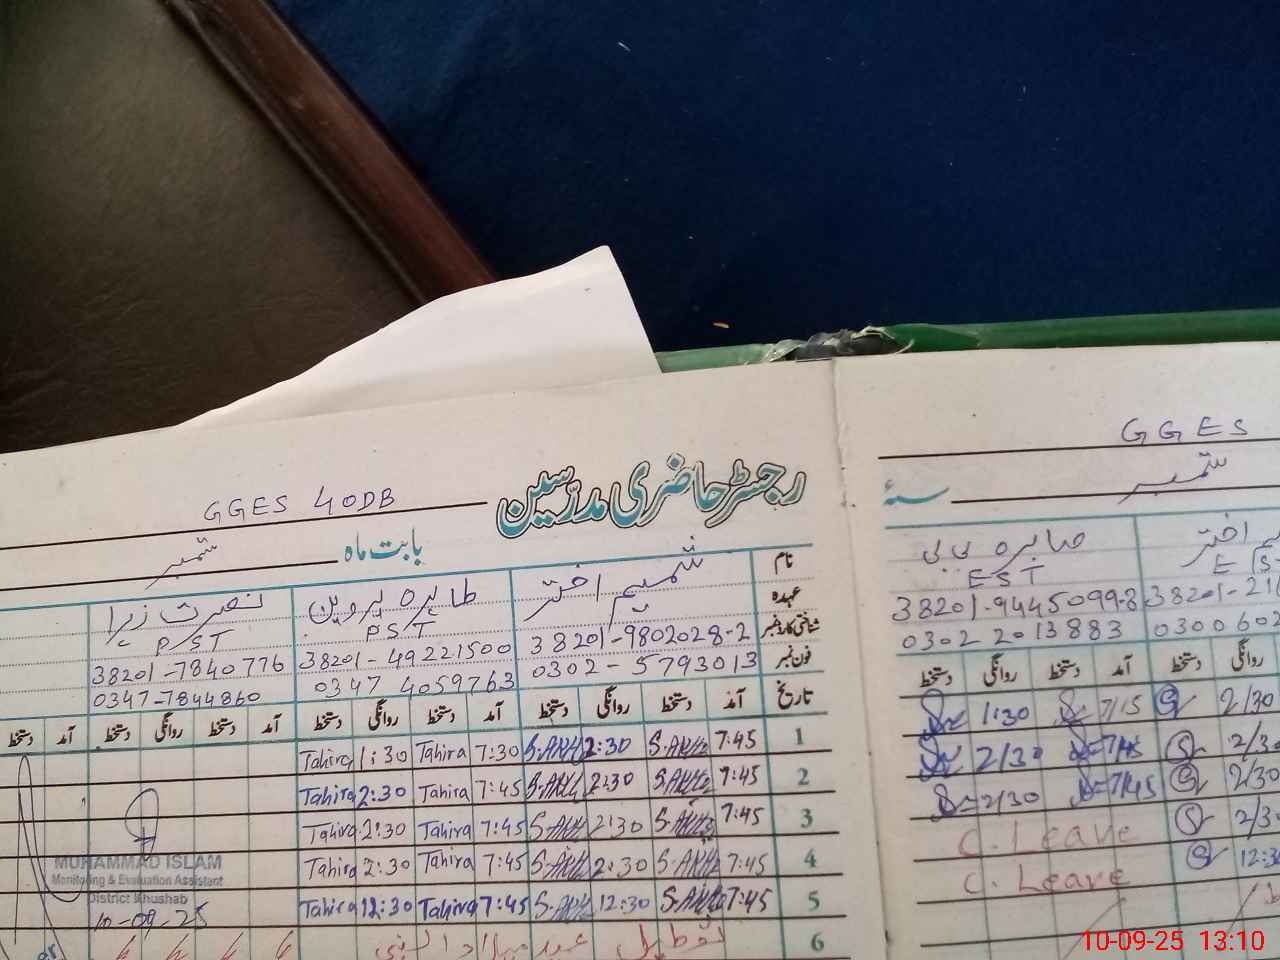 GGES 40DB
رجسٹر حاضری مدرسین
بابت ماہ ستمبر
نام شمیم اختر طاہرہ پروین نصرت زہرا
عہدہ PST P/ST
شناختی کارڈ نمبر 38201-9802028-2 38201-49221500 38201-7840776
فون نمبر 0302-5793013 0347 4059763 0347-7844860
تاریخ آمد دستخط روانگی دستخط آمد دستخط روانگی دستخط آمد دستخط روانگی دستخط آمد دستخط
1 7:45 2:30 7:30 Tahira 1:30 Tahira
2 7:45 2:30 7:45 Tahira 2:30 Tahira
3 7:45 2:30 7:45 Tahira 2:30 Tahira
4 7:45 2:30 7:45 Tahira 2:30 Tahira
5 7:45 12:30 7:45 Tahira 12:30 Tahira
6 تعطیل عید میلاد النبی
MUHAMMAD ISLAM
Monitoring & Evaluation Assistant
District Khushab
10-09-25
GGES
ستمبر سنہ
اختر صابرہ بی بی
EST
38201-9445099-8
0302 2013883
روانگی دستخط آمد دستخط روانگی دستخط
2/30 7/15 1:30
2/30 7/45 2/30
2/30 7/45 2/30
C. Leave
C. Leave
10-09-25 13:10